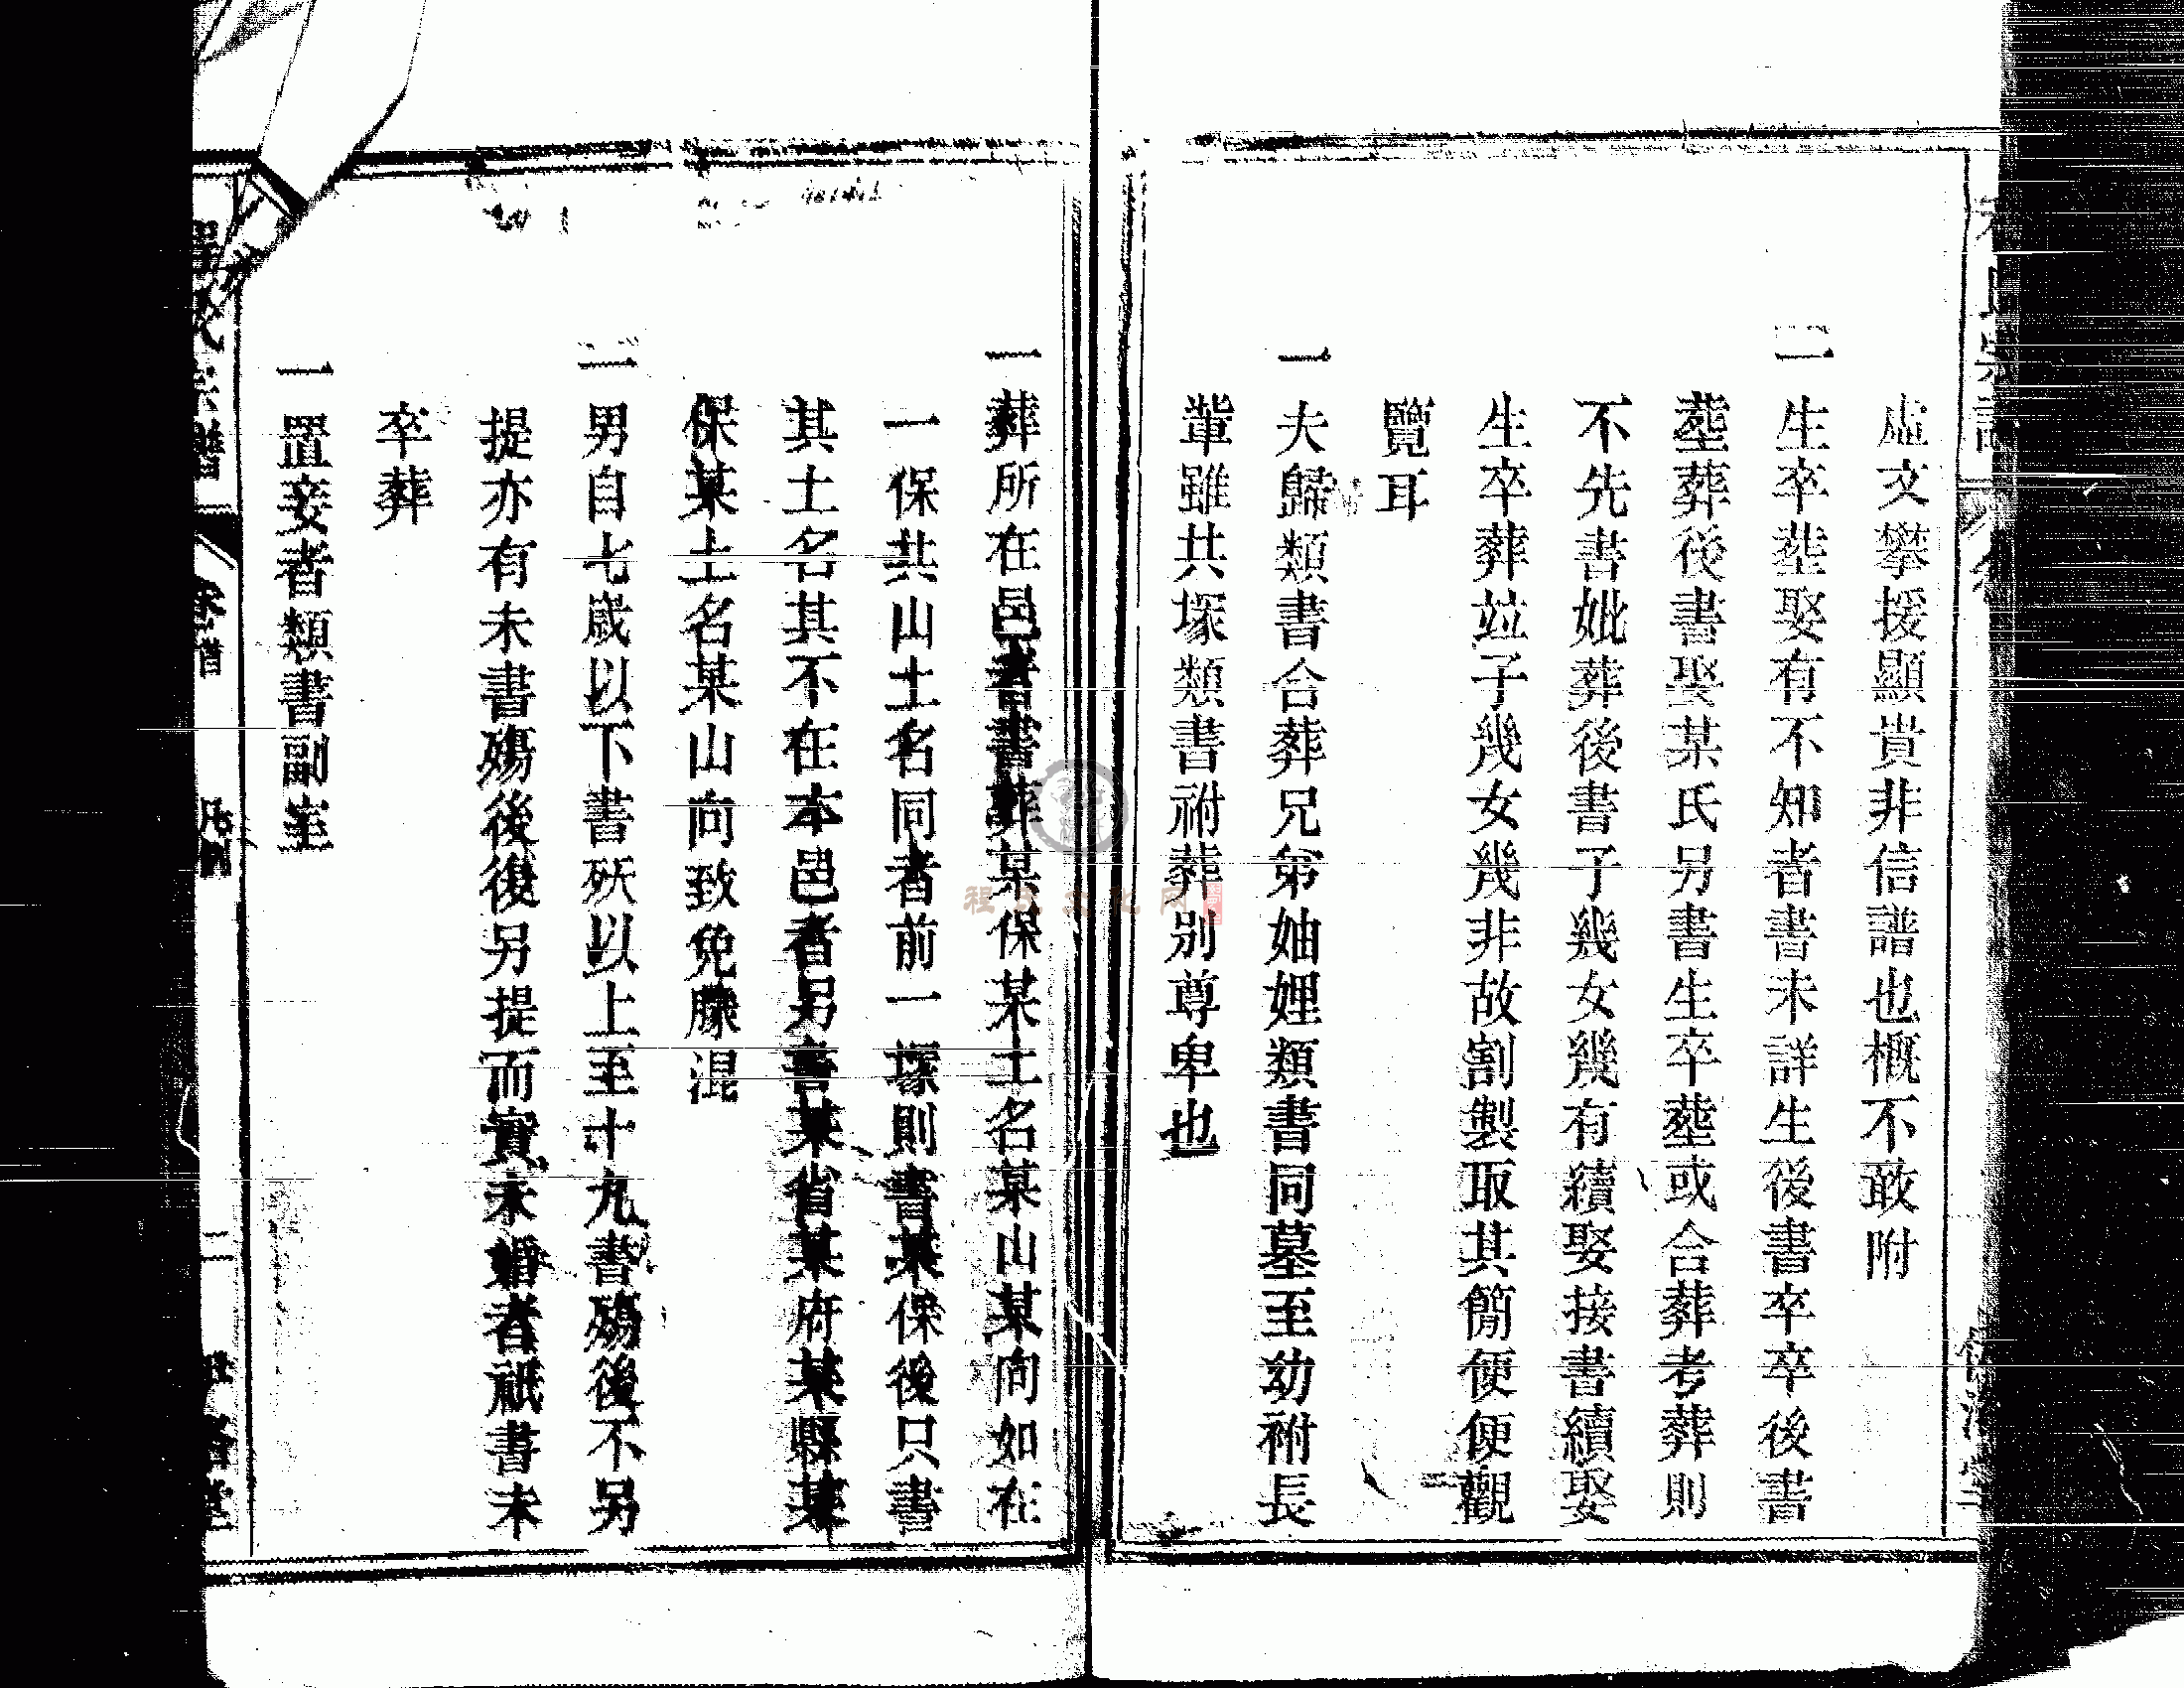 虛文攀援顯貴非信譜也概不敢附
一生卒塟娶有不知者書未詳生後書卒卒後書
塟葬後書娶某氏另書生卒塟或合葬考葬則
不先書妣葬後書子幾女幾有續娶接書續娶
生卒葬竝子幾女幾非故割製取其簡便便觀
覽耳
一夫歸類書合葬兄弟妯娌類書同墓至幼祔長
輩雖共塚類書祔葬別尊卑也
一葬所在邑者書葬某保某土名某山某向如在
一保共山土名同者前一塚則書某保後只書
其土名其不在本邑者另書某省某府某縣某
保某土名某山向致免朦混
一男自七歲以下書殀以上至十九書殤後不另
提亦有未書殤後復另提而實未婚者祇書未
卒葬
一置妾者類書副室
程氏宗譜
卷首
凡例
二
程氏文化网